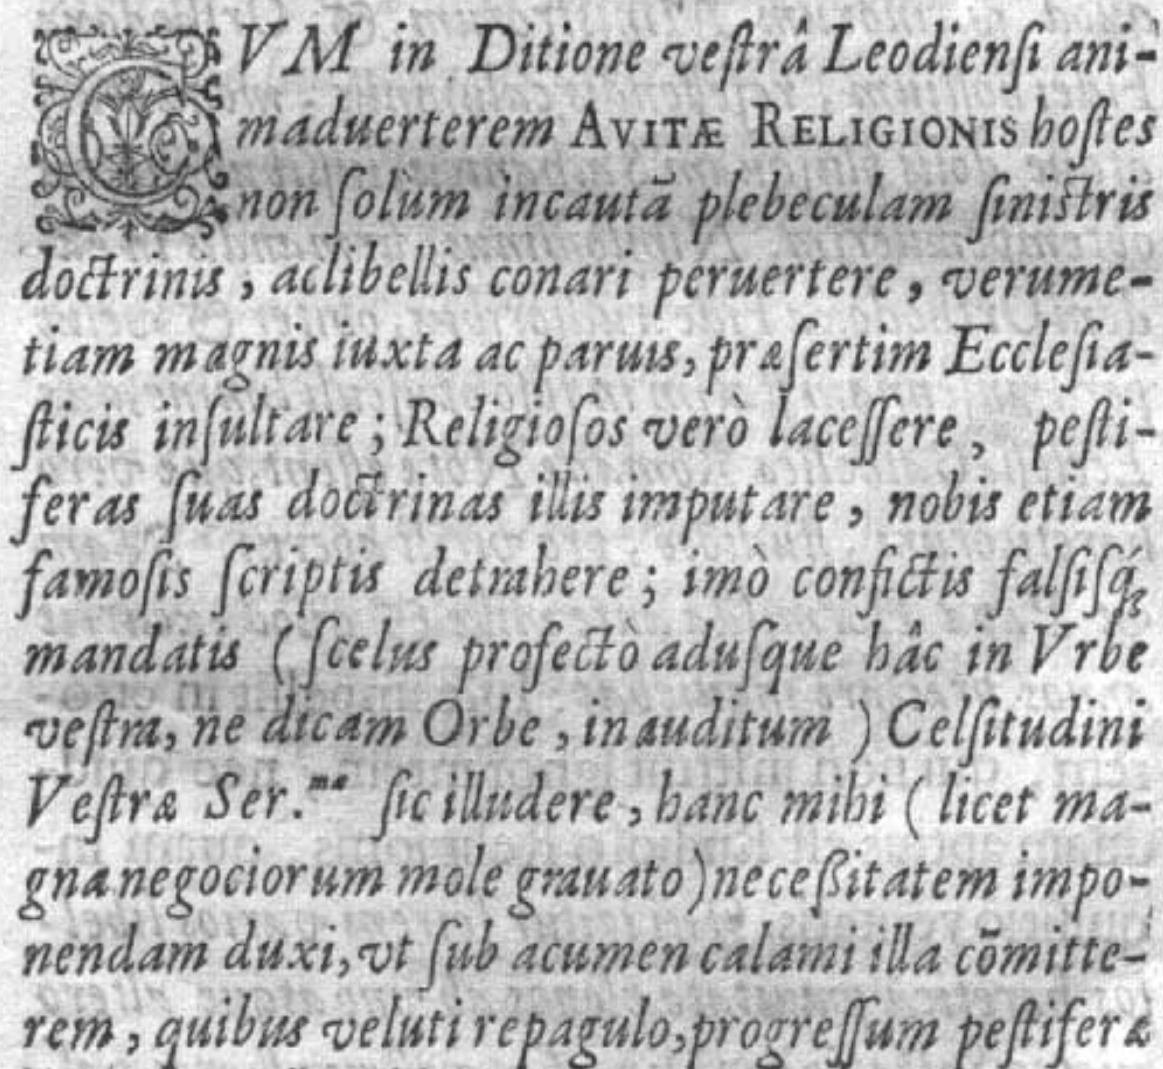 CVM in Ditione veſtrâ Leodienſi ani-
maduerterem AVITÆ RELIGIONIS hoſtes
non ſolùm incautā plebeculam ſiniſtris
doctrinis, ac libellis conari peruertere, verume-
tiam magnis iuxta ac paruis, præſertim Eccleſia-
ſticis inſultare; Religioſos verò laceſſere, peſti-
feras ſuas doctrinas illis imputare, nobis etiam
famoſis ſcriptis detrahere; imò confictis falſiſq́;
mandatis (ſcelus profectò aduſque hâc in Vrbe
veſtra, ne dicam Orbe, inauditum) Celſitudini
Veſtræ Ser.mæ ſic illudere, hanc mihi (licet ma-
gna negociorum mole grauato) neceßitatem impo-
nendam duxi, vt ſub acumen calami illa cōmitte-
rem, quibus veluti repagulo, progreſſum peſtiferæ